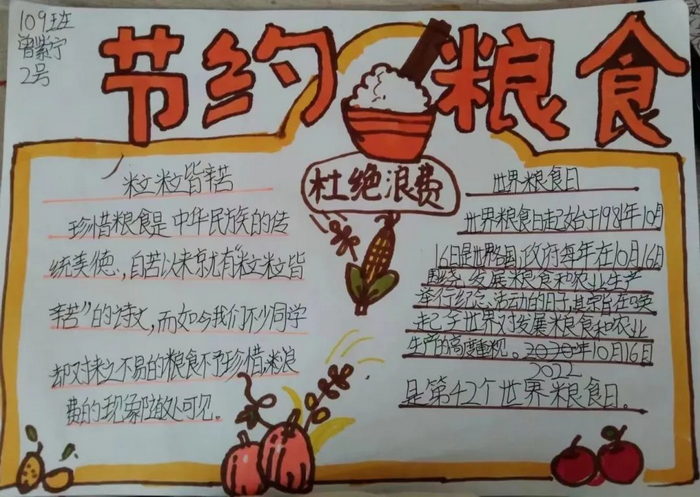 109班
曾紫宁
2号
节约粮食
杜绝浪费
粒粒皆辛苦
珍惜粮食是中华民族的传
统美德,自苦以来就有"粒粒皆
辛苦"的诗文,而如今我们不少同学
却对来之不易的粮食不予珍惜,粮浪
费的现象随处可见。
世界粮食日
世界粮食日起始于1981年10月
16日是世界各国政府每年在10月16日
围绕发展粮食和农业生产
举行纪念活动的日子,其宗旨在唤
起全世界对发展粮食和农业
生产的高度重视。2022年10月16日
是第42个世界粮食日。